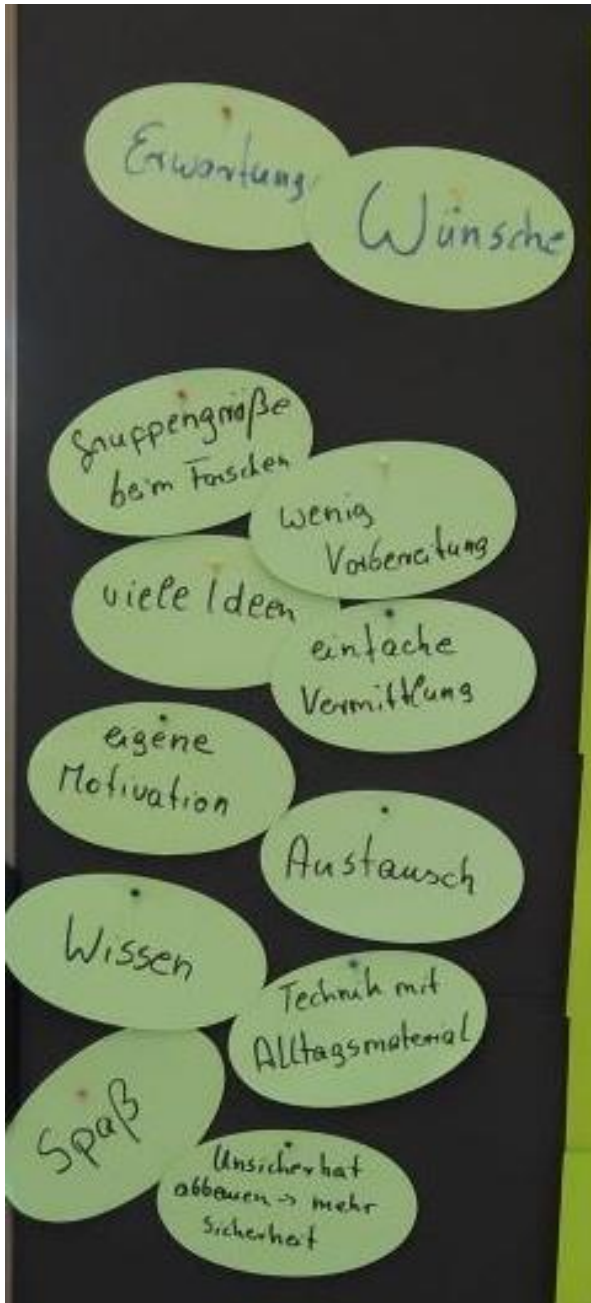 Erwartung
Wünsche
Gruppengröße
beim Forschen
wenig
Vorbereitung
viele Ideen
einfache
Vermittlung
eigene
Motivation
Austausch
Wissen
Technik mit
Alltagsmaterial
Spaß
Unsicherhat
abbauen -> mehr
Sicherheit